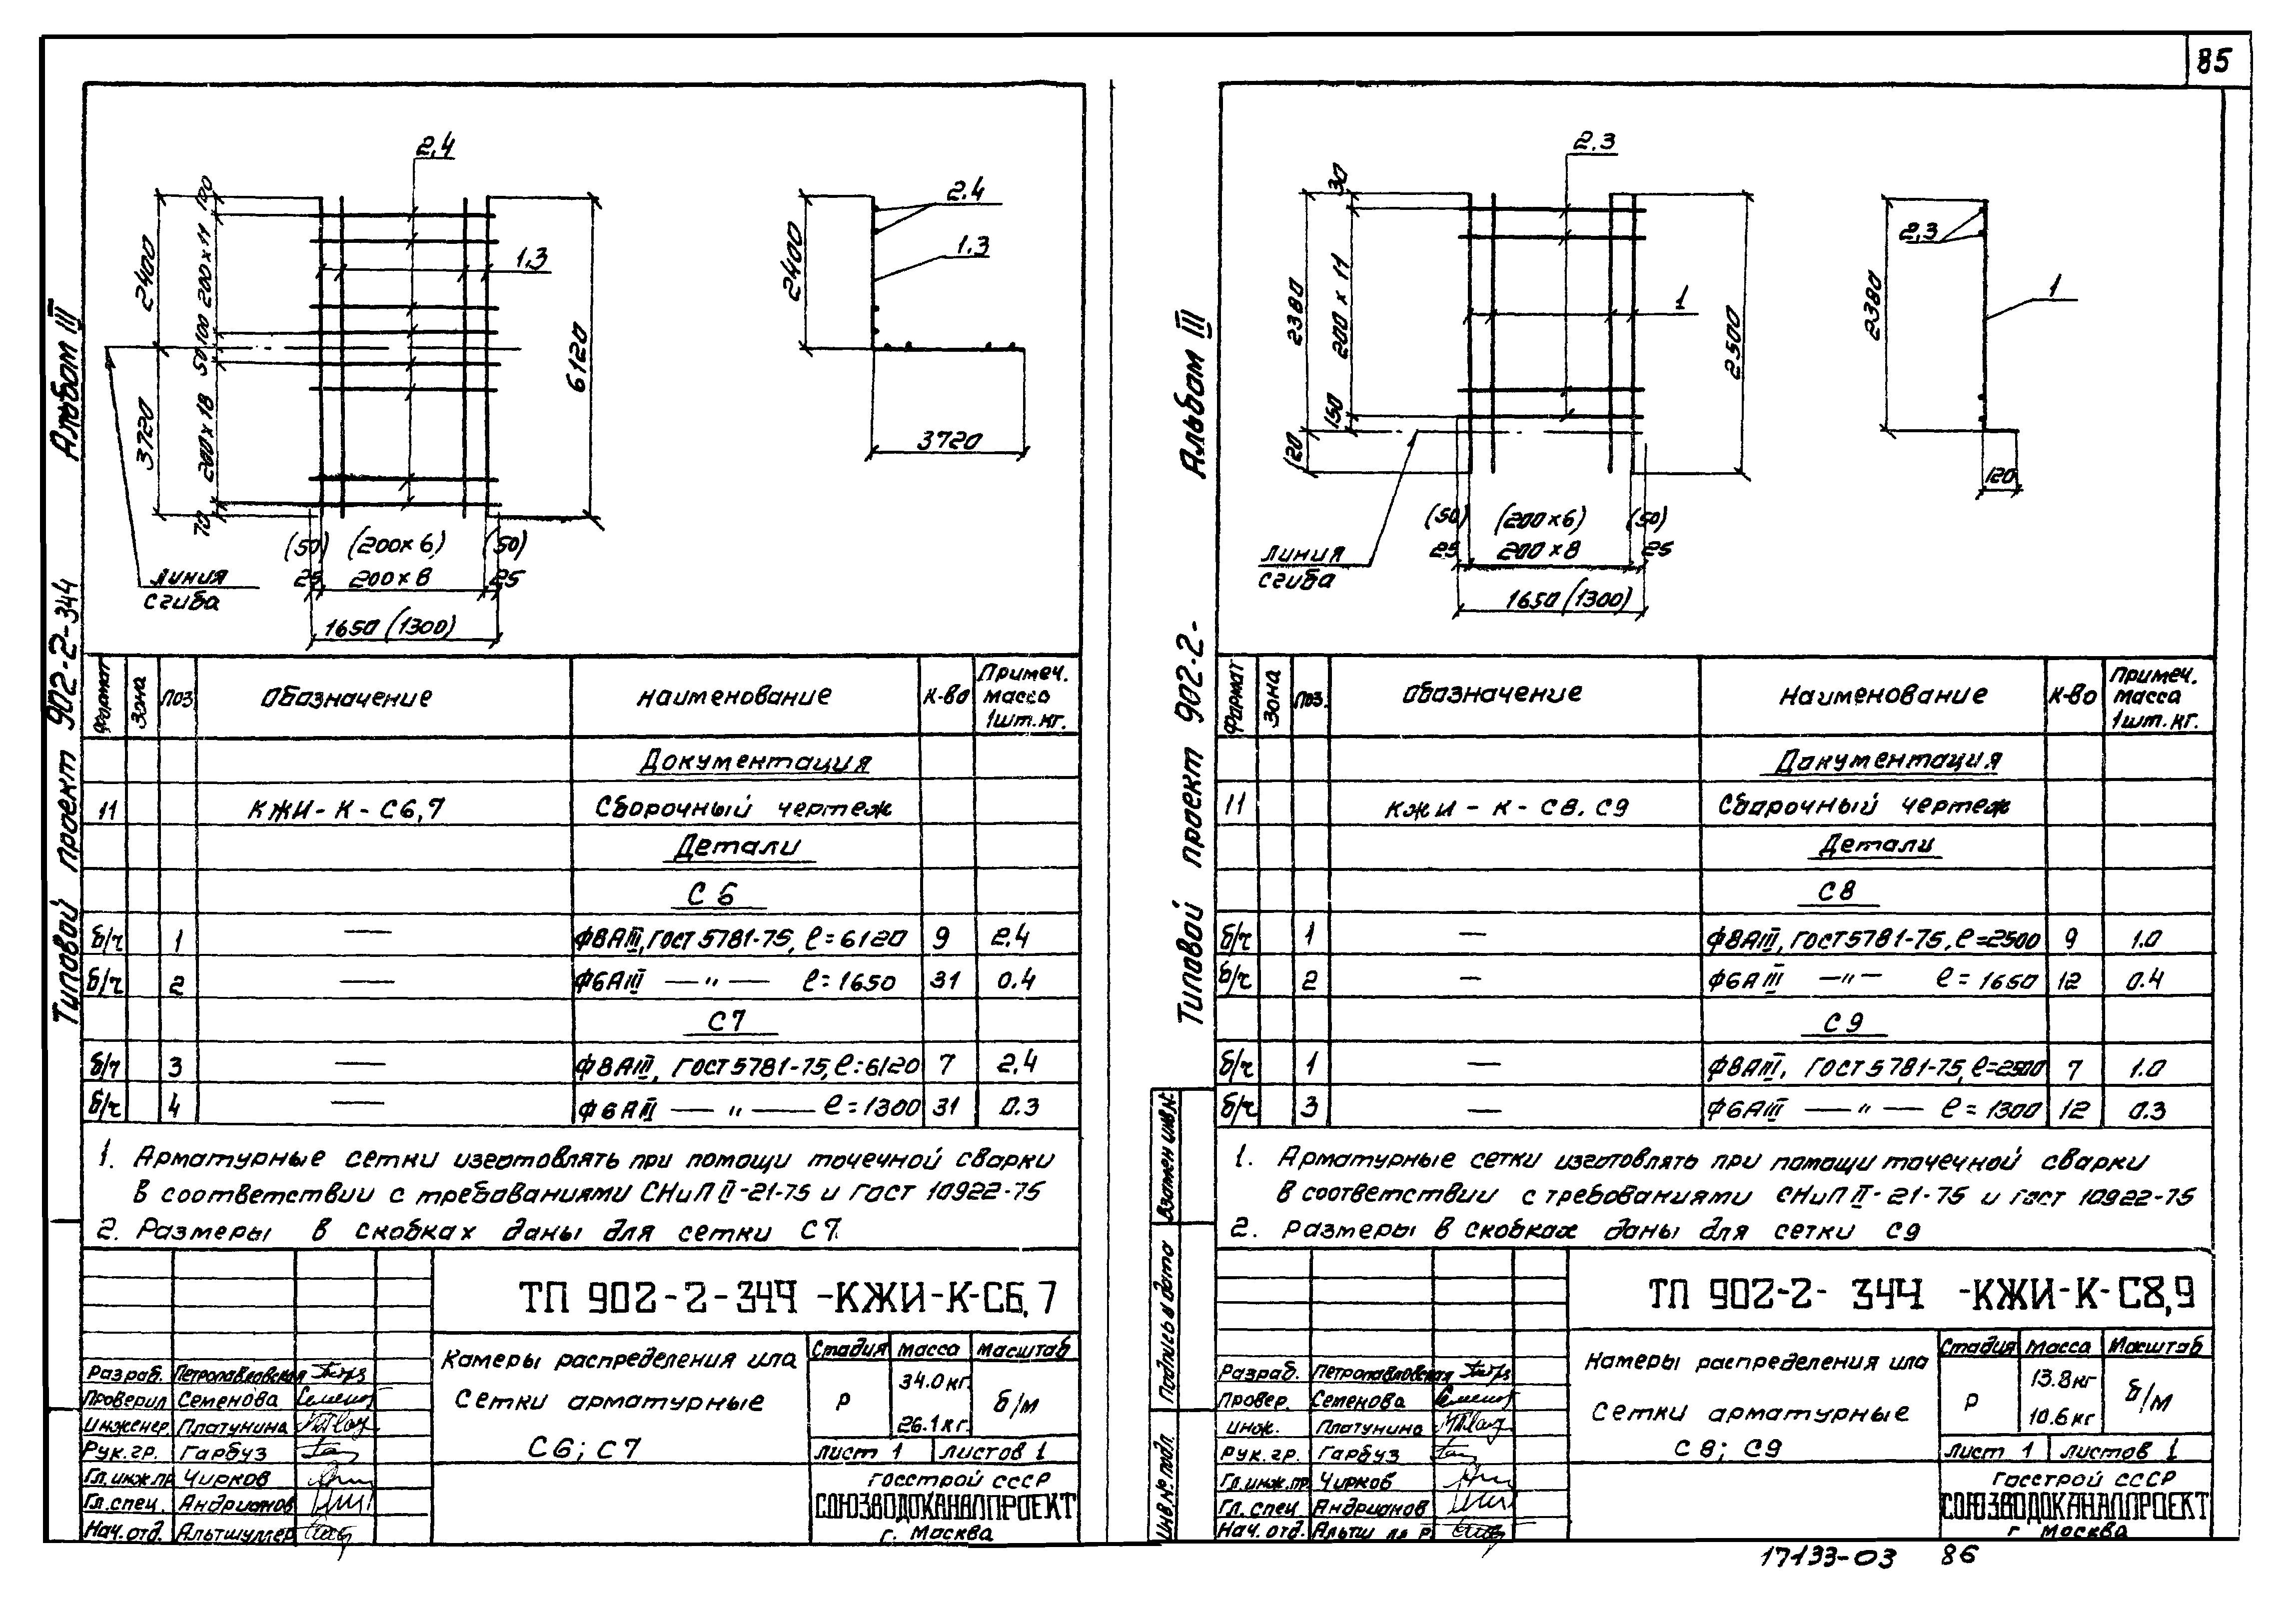 85
Альбом III
Типовой проект 902-2-344
2.4
1.3
2400
3720
100
200×11
100
50
200×18
70
6120
(50) (200×6) (50)
25 200×8 25
1650 (1300)
линия
сгиба
2.4
1.3
2400
3720
Формат
Зона
Поз.
Обозначение
Наименование
К-во
Примеч.
масса
1шт.кг.
Документация
11 КЖИ-К-С6,7 Сборочный чертеж
Детали
С6
б/ч 1 — Ф8АIII, ГОСТ 5781-75, ℓ=6120 9 2.4
б/ч 2 — Ф6АIII —"— ℓ=1650 31 0.4
С7
б/ч 3 — Ф8АIII, ГОСТ 5781-75, ℓ=6120 7 2.4
б/ч 4 — Ф6АIII —"— ℓ=1300 31 0.3
1. Арматурные сетки изготовлять при помощи точечной сварки
в соответствии с требованиями СНиП II-21-75 и ГОСТ 10922-75
2. Размеры в скобках даны для сетки С7.
ТП 902-2-344 -КЖИ-К-С6,7
Камеры распределения ила
Сетки арматурные
С6; С7
Стадия Масса Масштаб
Р 34.0кг. 26.1кг. б/м
Лист 1 Листов 1
Госстрой СССР
СОЮЗВОДОКАНАЛПРОЕКТ
г. Москва
Разраб. Петропавловская
Проверил Семенова
Инженер. Платунина
Рук.гр. Гарбуз
Гл.инж.пр. Чирков
Гл.спец. Андрианов
Нач.отд. Альтшуллер
Альбом III
Типовой проект 902-2-
2.3
1
30
200×11
150
2380
120
2500
(50) (200×6) (50)
25 200×8 25
1650 (1300)
линия
сгиба
2,3
1
2380
120
Формат
Зона
Поз.
Обозначение
Наименование
К-во
Примеч.
масса
1шт.кг.
Документация
11 КЖИ-К-С8.С9 Сборочный чертеж
Детали
С8
б/ч 1 — Ф8АIII, ГОСТ 5781-75, ℓ=2500 9 1.0
б/ч 2 — Ф6АIII —"— ℓ=1650 12 0.4
С9
б/ч 1 — Ф8АIII, ГОСТ 5781-75, ℓ=2500 7 1.0
б/ч 3 — Ф6АIII —"— ℓ=1300 12 0.3
1. Арматурные сетки изготовлять при помощи точечной сварки
в соответствии с требованиями СНиП II-21-75 и ГОСТ 10922-75
2. Размеры в скобках даны для сетки С9
ТП 902-2- 344 -КЖИ-К-С8,9
Камеры распределения ила
Сетки арматурные
С8; С9
Стадия Масса Масштаб
Р 13.8кг 10.6кг б/м
Лист 1 Листов 1
Госстрой СССР
СОЮЗВОДОКАНАЛПРОЕКТ
г Москва
Разраб. Петропавловская
Провер. Семенова
Инж. Платунина
Рук.гр. Гарбуз
Гл.инж.пр. Чирков
Гл.спец Андрианов
Нач.отд. Альтш ле р
Взамен инв.№
Подпись и дата
Инв.№ подл.
17133-03 86